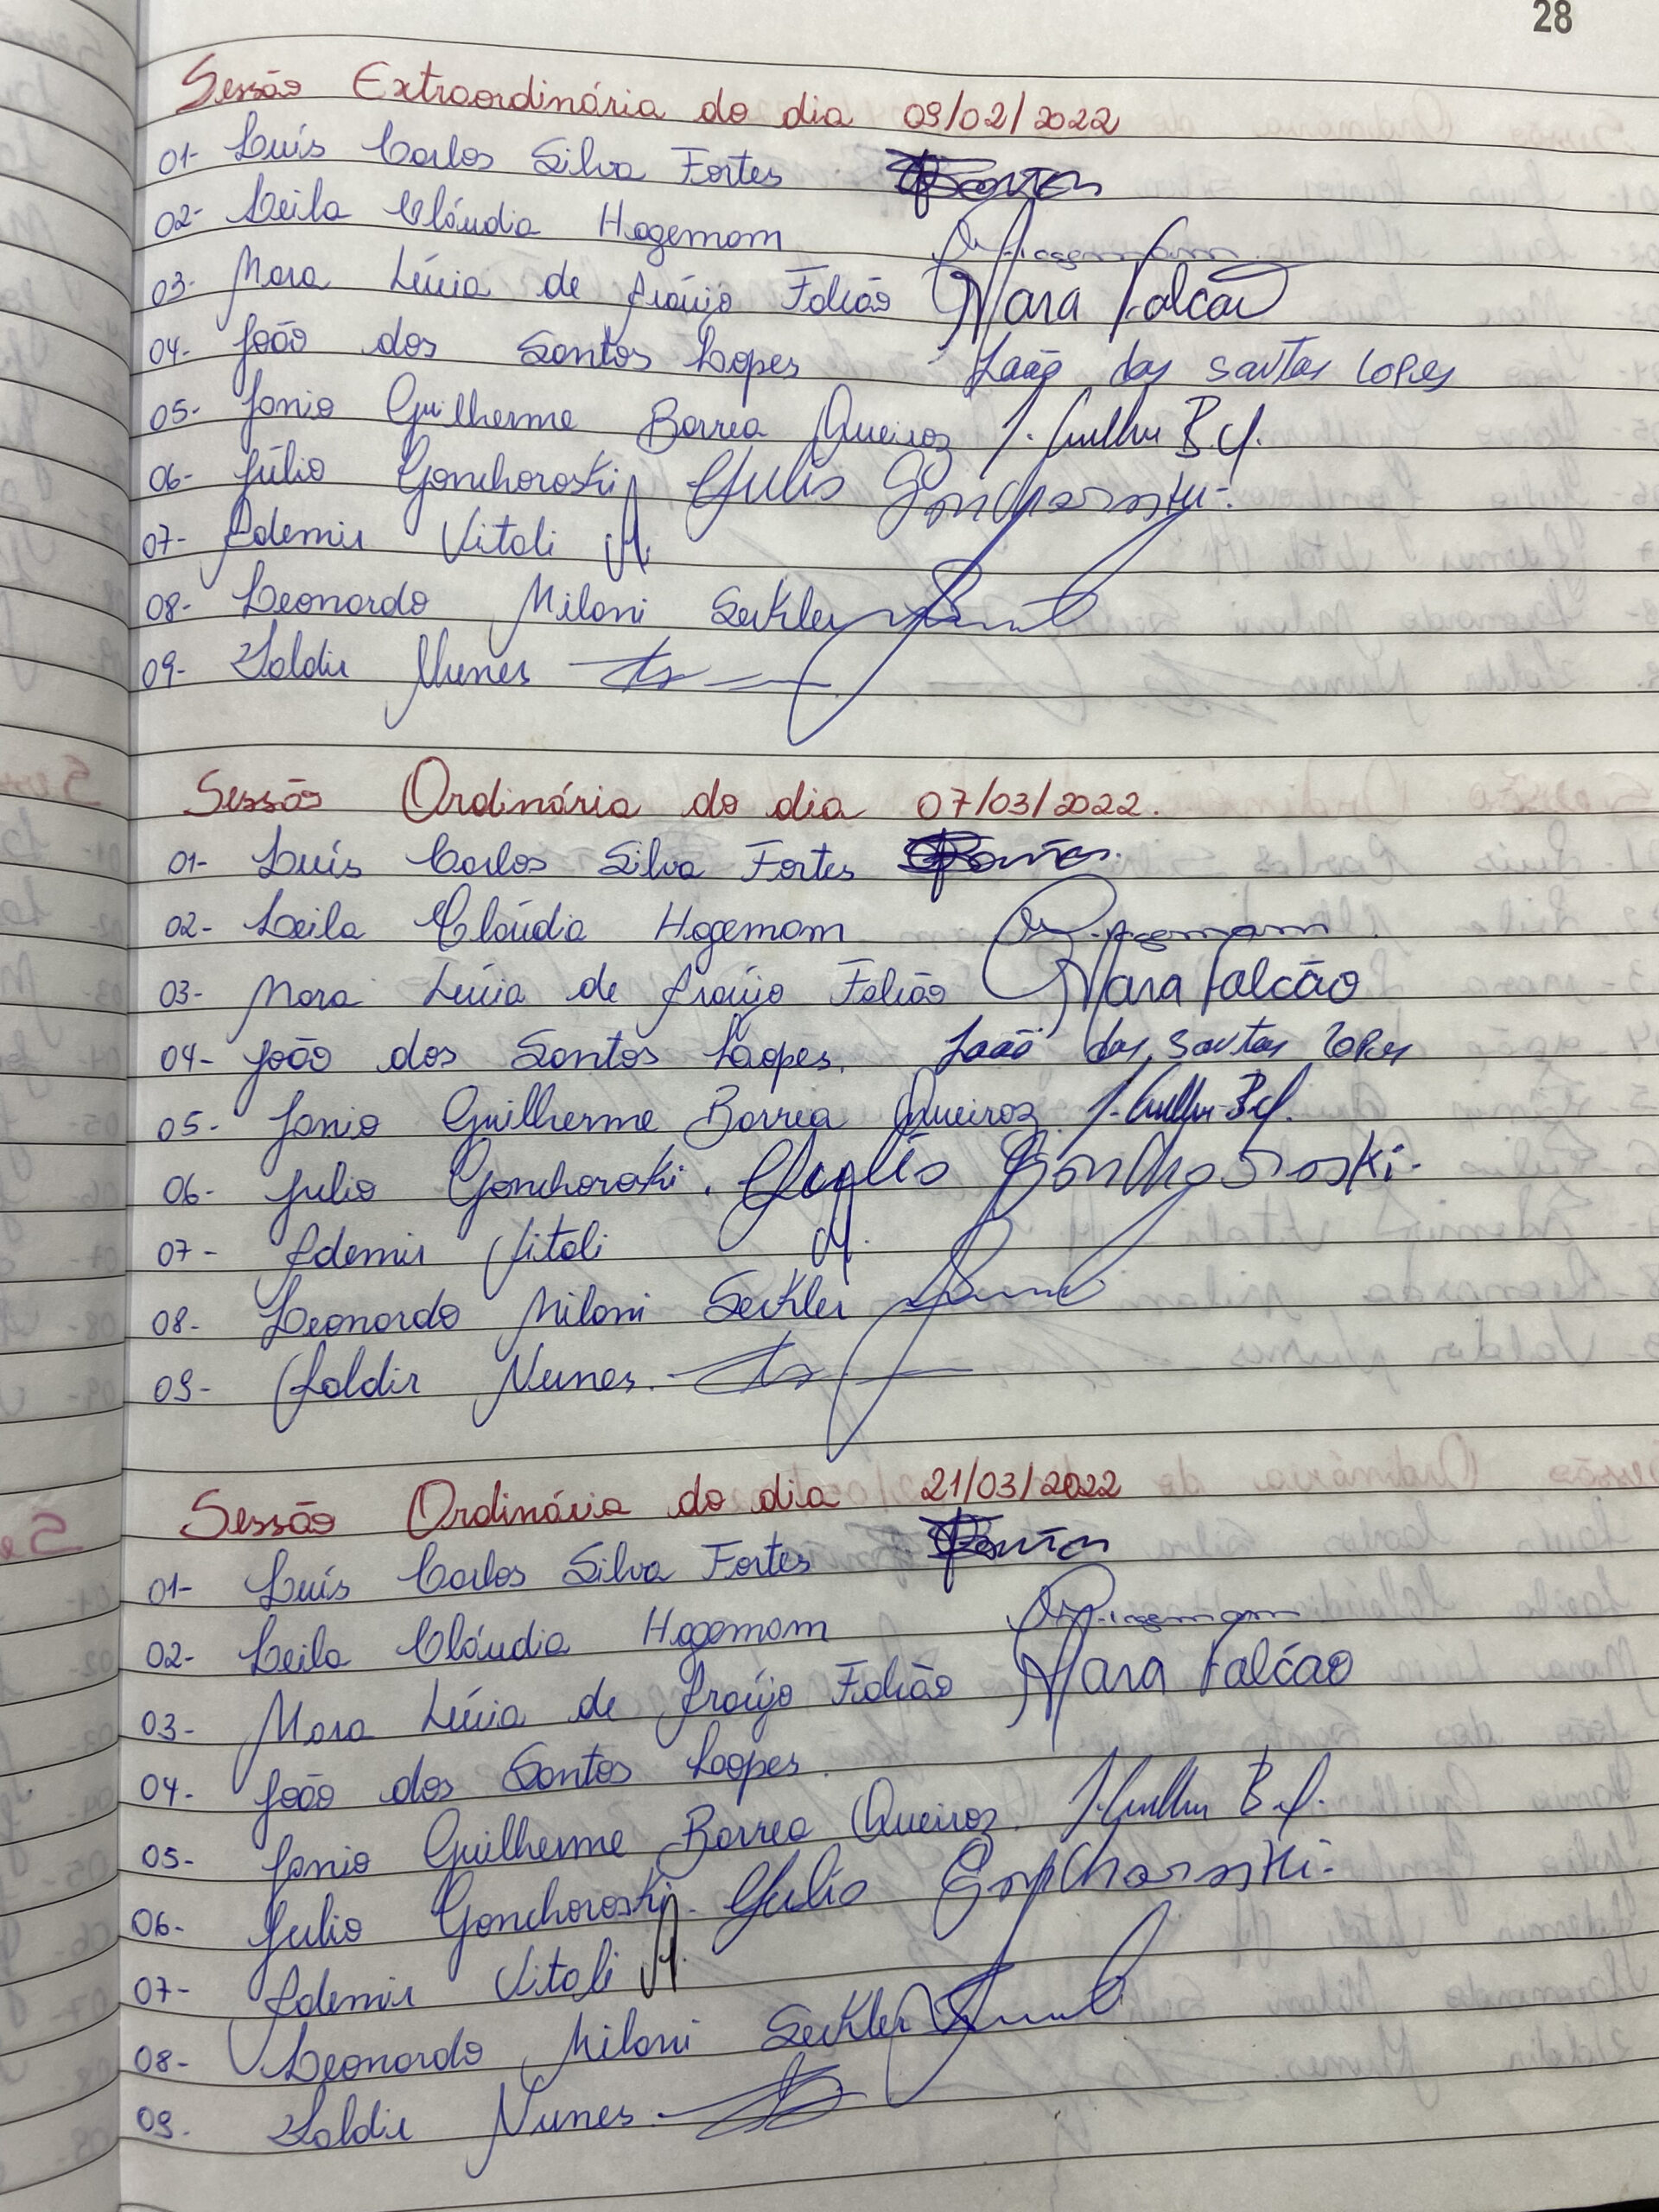 28
Sessão Extraordinária do dia 09/02/2022
01- Luís Carlos Silva Fortes Fortes
02- Leila Cláudia Hagemam
03- Mara Lúcia de Araújo Falcão Mara Falcão
04- João dos Santos Lopes João dos santos Lopes
05- Janio Guilherme Borrea Queiroz J. Guilher B.Q.
06- Júlio Gonchoroski Julio Goncharoski.
07- Ademir Vitali
08- Leonardo Milani Seckler
09- Valdir Nunes
Sessão Ordinária do dia 07/03/2022.
01- Luís Carlos Silva Fortes Fortes.
02- Leila Cláudia Hagemam
03- Mara Lúcia de Araújo Falcão Mara Falcão
04- João dos Santos Laopes. João dos santos Lopes
05- Janio Guilherme Borrea Queiroz. J. Guilher B.Q.
06- Julio Gonchoroski. Julio Gonchoroski.
07- Ademir Vitali
08- Leonardo Milani Seckler
09- Valdir Nunes.
Sessão Ordinária do dia 21/03/2022
01- Luís Carlos Silva Fortes Fortes
02- Leila Cláudia Hagemam
03- Mara Lúcia de Araújo Falcão Mara Falcão
04- João dos Santos Loopes.
05- Janio Guilherme Borrea Queiroz. J. Guilher B.Q.
06- Julio Gonchoroski. Julio Goncharoski.
07- Ademir Vitali
08- Leonardo Milani Seckler
09. Valdir Nunes.